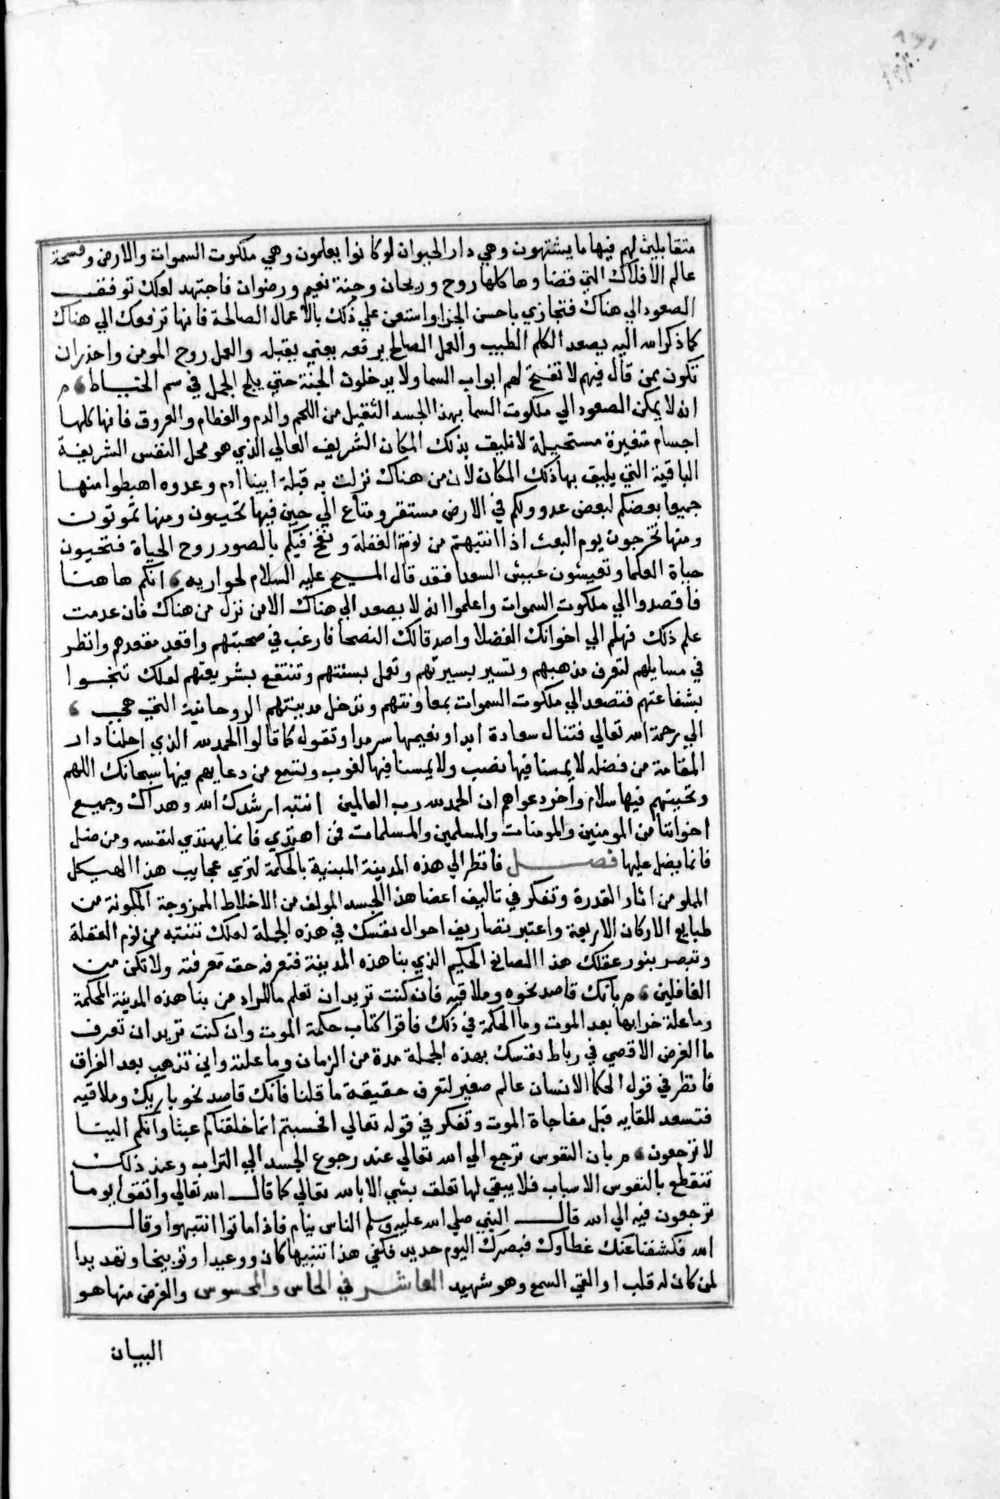 متقابلين لهم فيها ما يشتهون وهي دار الحيوان لو كانوا يعلمون وهي ملكوت السموات والارض وفسحة
عالم الافلاك التي فضاوها كلها روح وريحان وجنة نعيم ورضوان فاجتهد لعلك توفق
الصعود الي هناك فتجازي باحسن الجزا واستعن علي ذلك بالاعمال الصالحة فانها ترفعك الي هناك
كما ذكر الله اليه يصعد الكلم الطيب والعمل الصالح يرفعه يعني يقبله والعمل روح المومن واحذر ان
تكون ممن قال فيهم لا تفتح لهم ابواب السما ولا يدخلون الجنة حتي يلج الجمل في سم الخياط م
انه لا يمكن الصعود الي ملكوت السما بهذا الجسد الثقيل من اللحم والدم والعظام والعروق فانها كلها
اجسام متغيرة مستحيلة لا تليق بذلك المكان الشريف العالي الذي هو محل النفس الشريفة
الباقية التي يليق بها ذلك المكان لان من هناك نزلت به قبلة ابينا ادم وعدوه اهبطوا منها
جميعا بعضكم لبعض عدو ولكم في الارض مستقر ومتاع الي حين فيها تحيون ومنها تموتون
ومنها تخرجون يوم البعث اذا انتبهتم من نومة الغفلة ونفخ فيكم بالصور روح الحياة فتحيون
حياة العلما وتعيشون عيش السعدا فقد قال المسيح عليه السلام لحواريه انكم هاهنا
فاقصدوا الي ملكوت السموات واعلموا انه لا يصعد الي هناك الا من نزل من هناك فان عدمت
علم ذلك فهلم الي اخوانك الفضلا واصدقائك النصحا فارغب في صحبتهم واقعد مقعدهم وانظر
في مسايلهم لتعرف مذهبهم وتسير بسيرتهم وتعمل بسنتهم وتنتفع بشريعتهم لعلك تنجوا
بشفاعتهم فتصعد الي ملكوت السموات بمعاونتهم وتدخل مدينتهم الروحانية التي حجب
الي رحمة الله تعالي فتنال سعادة ابدا ونعيمها سرمدا وتقول كما قالوا الحمد لله الذي احلنا دار
المقامة من فضله لا يمسنا فيها نصب ولا يمسنا فيها لغوب وتسمع من دعايهم فيها سبحانك اللهم
وتحيتهم فيها سلام واخر دعواهم ان الحمد لله رب العالمين انتبه ارشدك الله وهداك وجميع
اخواننا من المومنين والمومنات والمسلمين والمسلمات فمن اهتدي فانما يهتدي لنفسه ومن ضل
فانما يضل عليها فصل فانظر الي هذه المدينة المبنية بالحكمة لتري عجايب هذا الهيكل
المملو من اثار القدرة وتفكر في تاليف اعضا هذا الجسد المولف من الاخلاط الممزوجة المكونة من
طبايع الاركان الاربعة واعتبر تصاريف احوال نفسك في هذه الجملة لعلك تنتبه من نوم الغفلة
وتبصر بنور عقلك هذا الصانع الحكيم الذي بنا هذه المدينة فتعرفه حق معرفته ولا تكن من
الغافلين م بانك قاصد نحوه وملاقيه فان كنت تريد ان تعلم ما المراد من بنا هذه المدينة المحكمة
وما علة خرابها بعد الموت وما الحكمة في ذلك فاقرا كتاب حكمة الموت وان كنت تريد ان تعرف
ما الغرض الاقصي في رباط نفسك بهذه الجملة مدة من الزمان وما علته واين تذهب بعد الفراق
فانظر في قول الحكما الانسان عالم صغير لتعرف حقيقة ما قلنا فانك قاصد نحو باريك وملاقيه
فتسعد للقايه قبل مفاجاة الموت وتفكر في قوله تعالي افحسبتم انما خلقناكم عبثا وانكم الينا
لا ترجعون م بان النفوس ترجع الي الله تعالي عند رجوع الجسد الي التراب وعند ذلك
تنقطع بالنفوس الاسباب فلا يبقي لها تعلق بشي الا بالله تعالي كما قال الله تعالي واتقوا يوما
ترجعون فيه الي الله قال النبي صلي الله عليه وسلم الناس نيام فاذا ماتوا انتبهوا وقال
الله فكشفنا عنك غطاوك فبصرك اليوم حديد فكفي هذا تنبيها كان ووعيدا وتوبيخا وتهديدا
لمن كان له قلب او القي السمع وهو شهيد العاشر في الحاس والمحسوس والغرض منها هو
البيان